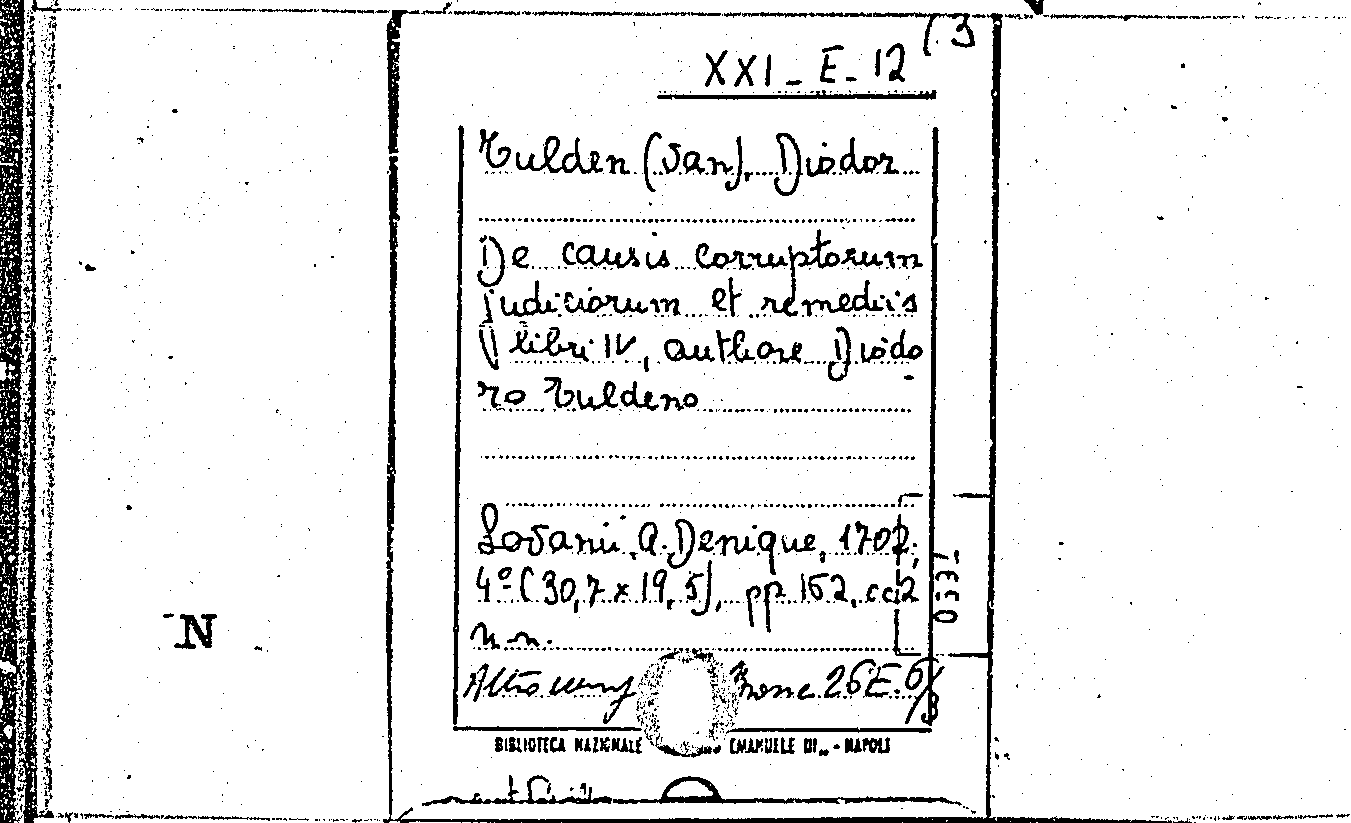 (3
XXI - E - 12
Tulden (Van), Diodor
De causis corruptorum
judiciorum et remediis
libri IV, authore Diodo
ro Tuldeno
Lovanii, A. Denique, 1702,
4º (30,7 x 19,5), pp. 152, cc. 2
n.n.
Altro 26 E. 6/3
BIBLIOTECA NAZIONALE EMANUELE III - NAPOLI
N